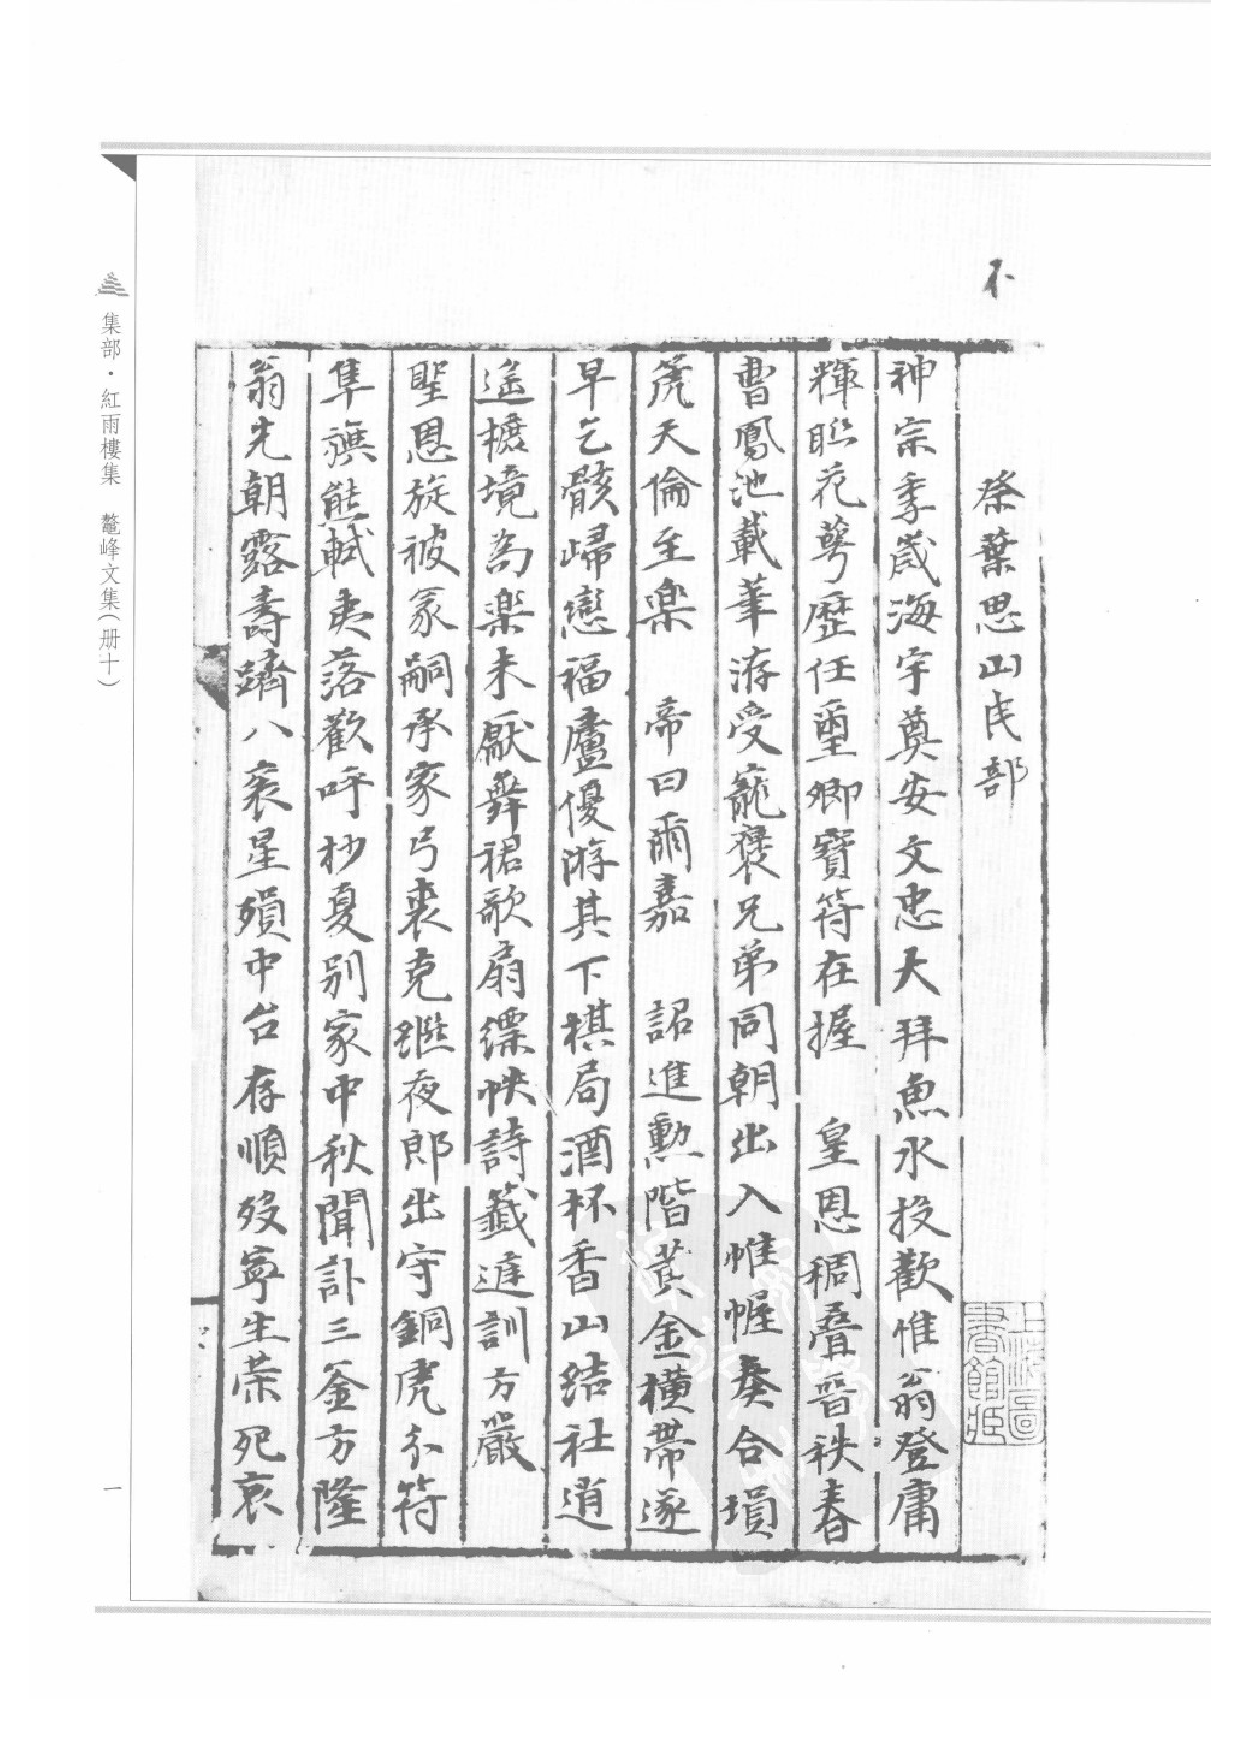 不
祭葉思山民部
神宗季歲海宇奠安文忠大拜魚水投歡惟翁登庸
輝聀花萼歷任璽卿寶符在握　皇恩稠疊晉秩春
曹鳳池載筆洊受寵褒兄弟同朝出入帷幄奏合塤
篪天倫至樂　帝曰爾嘉　詔進勳階黃金橫帶遂
早乞骸歸戀福廬優游其下棋局酒杯香山結社逍
遙樓境為樂未厭舞裙歌扇縹帙詩籤遽訓方嚴
聖恩旋被冢嗣承家弓裘克繼夜郎出守銅虎分符
隼旟熊軾夷落歡呼杪夏別家中秋聞訃三釜方隆
翁先朝露壽躋八袠星殞中台存順歿寧生榮死哀
上海圖書館藏
集部·紅雨樓集　鼇峰文集（册十）
一